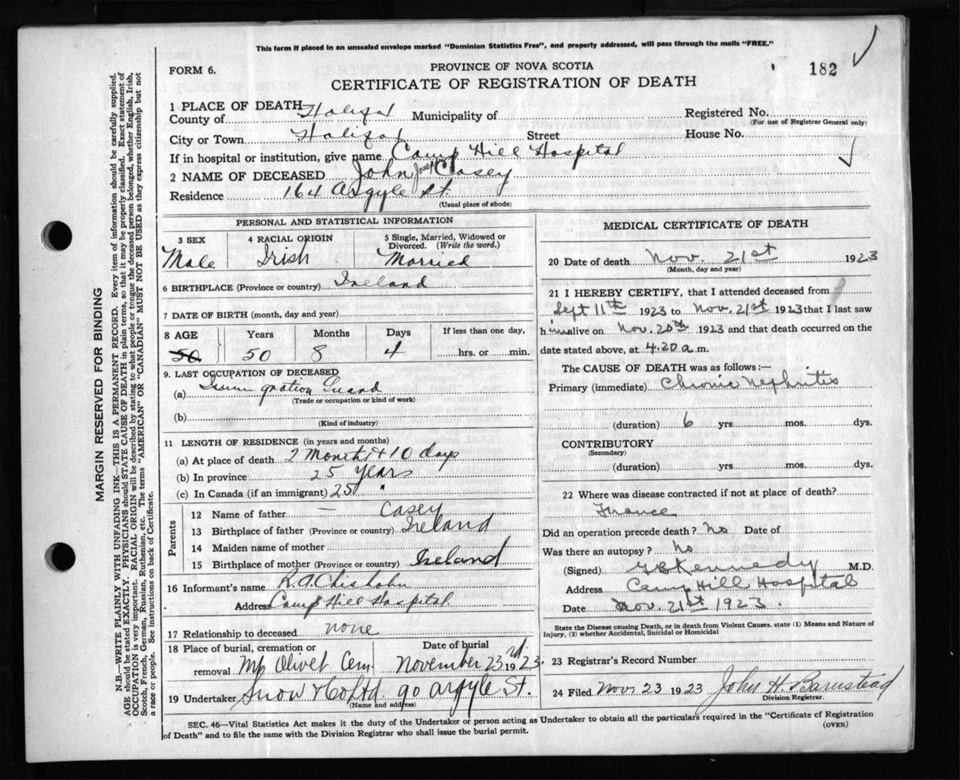 This form if placed in an unsealed envelope marked "Dominion Statistics Free", and properly addressed, will pass through the mails "FREE."
FORM 6.
PROVINCE OF NOVA SCOTIA
182
CERTIFICATE OF REGISTRATION OF DEATH
1 PLACE OF DEATH
County of Halifax Municipality of Registered No.
(For use of Registrar General only)
City or Town Halifax Street House No.
If in hospital or institution, give name Camp Hill Hospital
2 NAME OF DECEASED John Casey
Residence 164 Argyle St.
(Usual place of abode)
PERSONAL AND STATISTICAL INFORMATION
3 SEX 4 RACIAL ORIGIN 5 Single, Married, Widowed or Divorced. (Write the word.)
Male Irish Married
6 BIRTHPLACE (Province or country) Ireland
7 DATE OF BIRTH (month, day and year)
8 AGE Years Months Days If less than one day,
50 50 8 4 hrs. or min.
9. LAST OCCUPATION OF DECEASED
(a) Immigration Guard
(Trade or occupation or kind of work)
(b)
(Kind of industry)
11 LENGTH OF RESIDENCE (in years and months)
(a) At place of death 2 Months + 10 days
(b) In province 25 Years
(c) In Canada (if an immigrant) 25 "
Parents
12 Name of father — Casey
13 Birthplace of father (Province or country) Ireland
14 Maiden name of mother
15 Birthplace of mother (Province or country) Ireland
16 Informant's name R.A. Chisholm
Address Camp Hill Hospital
17 Relationship to deceased none
18 Place of burial, cremation or removal Mt Olivet Cem
Date of burial November 23rd 1923
19 Undertaker Snow & Co Ltd. 90 Argyle St.
(Name and address)
MEDICAL CERTIFICATE OF DEATH
20 Date of death Nov. 21st 1923
(Month, day and year)
21 I HEREBY CERTIFY, that I attended deceased from
Sept 11th 1923 to Nov. 21st 1923 that I last saw
him alive on Nov. 20th 1923 and that death occurred on the
date stated above, at 4.20 a.m.
The CAUSE OF DEATH was as follows:—
Primary (immediate) Chronic Nephritis
(duration) 6 yrs. mos. dys.
CONTRIBUTORY
(Secondary)
(duration) yrs. mos. dys.
22 Where was disease contracted if not at place of death?
France
Did an operation precede death? No Date of
Was there an autopsy? No
(Signed) Kennedy M.D.
Address Camp Hill Hospital
Date Nov. 21st 1923.
State the Disease causing Death, or in death from Violent Causes, state (1) Means and Nature of
Injury, (2) whether Accidental, Suicidal or Homicidal
23 Registrar's Record Number
24 Filed Nov 23 1923 John H. Barnstead
Division Registrar.
SEC. 46—Vital Statistics Act makes it the duty of the Undertaker or person acting as Undertaker to obtain all the particulars required in the "Certificate of Registration
of Death" and to file the same with the Division Registrar who shall issue the burial permit.
(OVER)
MARGIN RESERVED FOR BINDING
N.B.—WRITE PLAINLY WITH UNFADING INK—THIS IS A PERMANENT RECORD. Every item of information should be carefully supplied.
AGE should be stated EXACTLY. PHYSICIANS should STATE CAUSE OF DEATH in plain terms, so that it may be properly classified. Exact statement of
OCCUPATION is very important. RACIAL ORIGIN will be described by stating to what people or tongue the deceased person belonged, whether English, Irish,
Scotch, French, German, Russian, Ruthenian, etc. The terms "AMERICAN" OR "CANADIAN" MUST NOT BE USED as they express citizenship but not
a race or people. See instructions on back of Certificate.